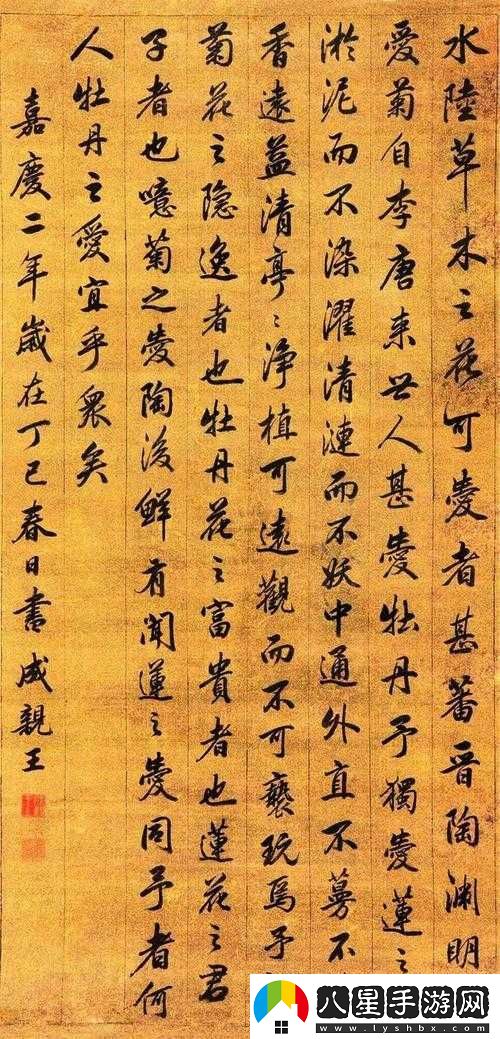 水陸草木之花可愛者甚蕃晉陶淵明
愛菊自李唐来世人甚愛牡丹予獨愛蓮之
淤泥而不染濯清漣而不妖中通外直不蔓不
香遠益清亭〻淨植可遠觀而不可褻玩焉予
菊花之隐逸者也牡丹花之富貴者也蓮花之君
子者也噫菊之愛陶後鮮有聞蓮之愛同予者何
人牡丹之愛宜乎衆矣
嘉慶二年歲在丁巳春日書成親王
八星手游网
www.lyshbx.com